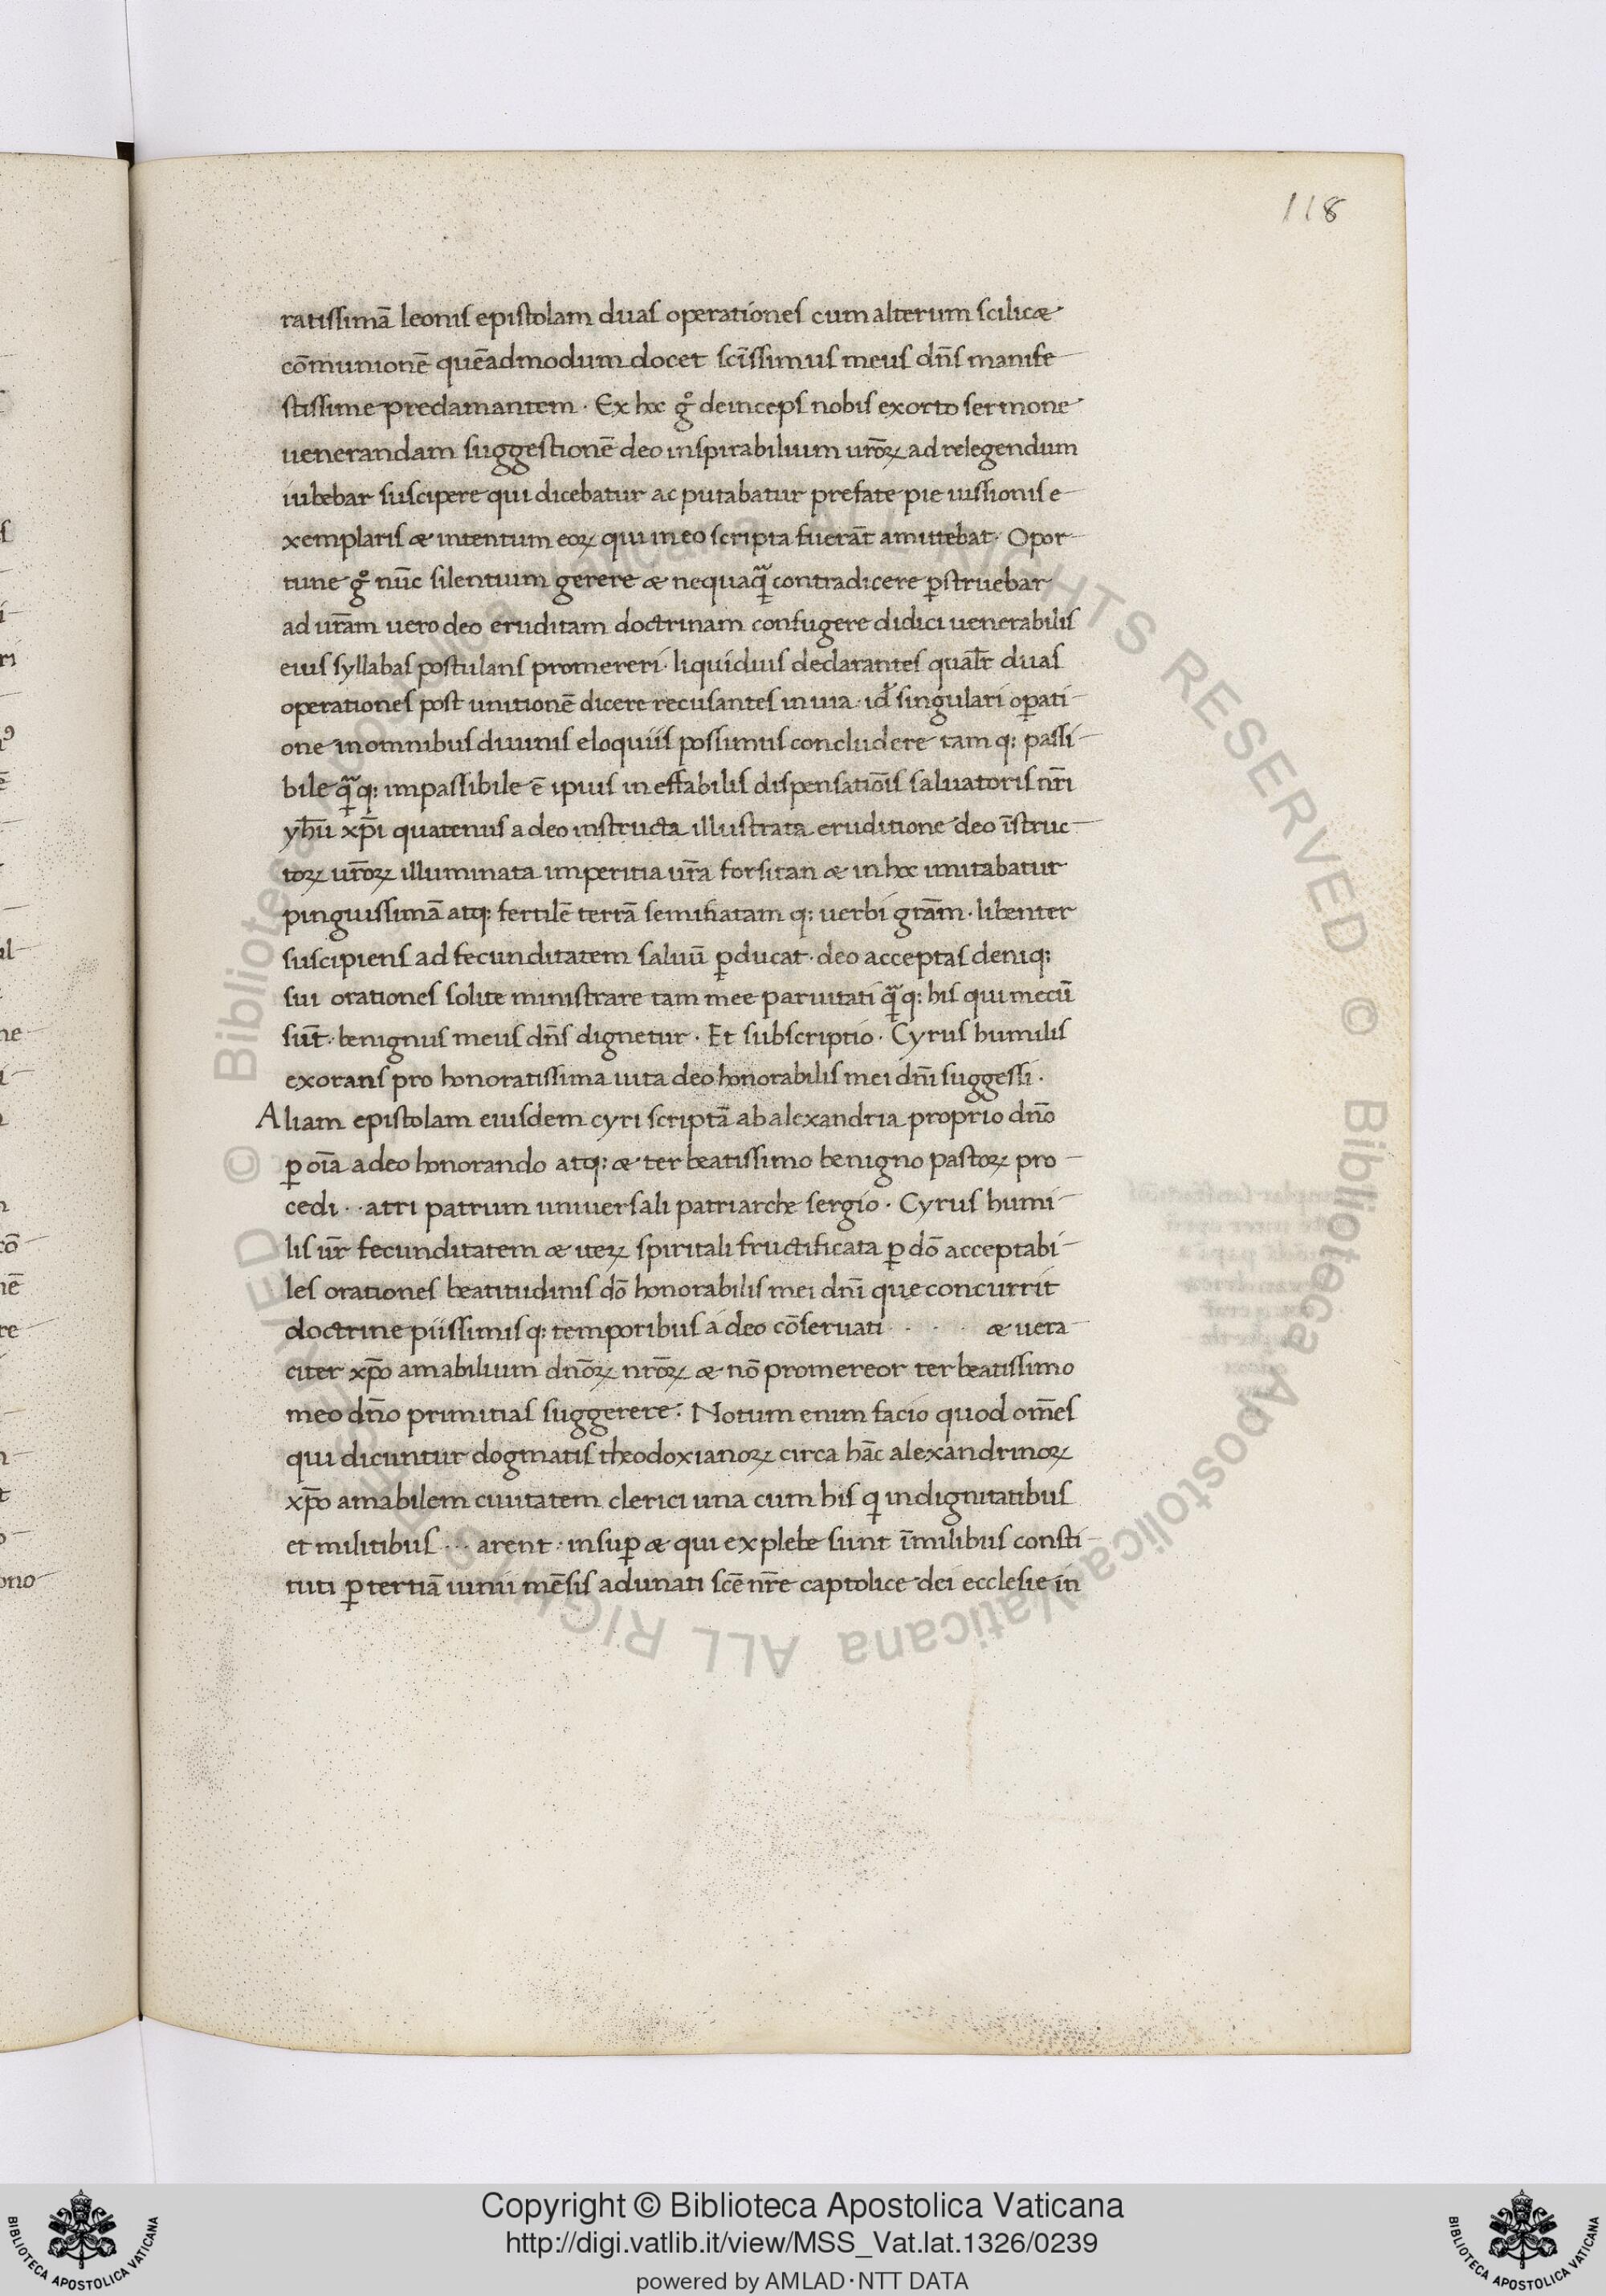 118
ratissimā leonis epistolam duas operationes cum alterum scilicæ
cōmunionē quēadmodum docet sc̄issimus meus dn̄s manife
stissime preclamantem · Ex hoc gͦ deinceps nobis exorto sermone
uenerandam suggestionē deo inspirabilium ur̄oꝝ ad relegendum
iubebar suscipere qui dicebatur ac putabatur prefate pie iussionis e
xemplaris æ intentum eoꝝ qui in eo scripta fuerāt amittebat · Opor
tune gͦ nūc silentium gerere æ nequaqͣ contradicere ꝑstruebar
ad ur̄am uero deo eruditam doctrinam confugere didici uenerabilis
eius syllabas postulans promereri · liquidius declarantes qualr̄ duas
operationes post unitionē dicere recusantes in uia · id singulari oꝑati
one in omnibus diuinis eloquiis possimus concludere tam q: passi
bile qͣ q: impassibile ē ipius in effabilis dispensatiōis saluatoris nr̄i
yh̄u xp̄i quatenus a deo instructa illustrata eruditione deo īstruc
toꝝ ur̄oꝝ illuminata imperitia ur̄a forsitan æ in hoc imitabatur
pinguissimā atq: fertilē terrā seminatam q: uerbi grām · libenter
suscipiens ad fecunditatem saluū ꝑducat · deo acceptas deniq:
sui orationes solite ministrare tam mee paruitati qͣ q: his qui mecū
sūt · benignus meus dn̄s dignetur · Et subscriptio · Cyrus humilis
exorans pro honoratissima uita deo honorabilis mei dn̄i suggessi ·
Aliam epistolam eiusdem cyri scriptā ab alexandria proprio dn̄o
ꝑ oīa a deo honorando atq: æ ter beatissimo benigno pastoꝝ pro
cedi · · atri patrum uniuersali patriarche sergio · Cyrus humi
lis ur̄ fecunditatem æ iteꝝ spiritali fructificata ꝑ dō acceptabi
les orationes beatitudinis dō honorabilis mei dn̄i que concurrit
doctrine piissimis q: temporibus a deo cōseruati · · · æ uera
citer xp̄o amabilium dn̄oꝝ nr̄oꝝ æ nō promereor ter beatissimo
meo dn̄o primitias suggerere : Notum enim facio quod om̄es
qui dicuntur dogmatis theodoxianoꝝ circa hāc alexandrinoꝝ
xp̄o amabilem ciuitatem clerici una cum his q in dignitatibus
et militibus · · · arent · insuꝑ æ qui ex plebe sunt īmilibus consti
tuti ꝑ tertiā iunii mēsis adunati scē nr̄e captolice dei ecclesie in
Copyright © Biblioteca Apostolica Vaticana
http://digi.vatlib.it/view/MSS_Vat.lat.1326/0239
powered by AMLAD·NTT DATA
BIBLIOTECA APOSTOLICA VATICANA
BIBLIOTECA APOSTOLICA VATICANA
© Biblioteca Apostolica Vaticana ALL RIGHTS RESERVED
© Biblioteca Apostolica Vaticana ALL RIGHTS RESERVED